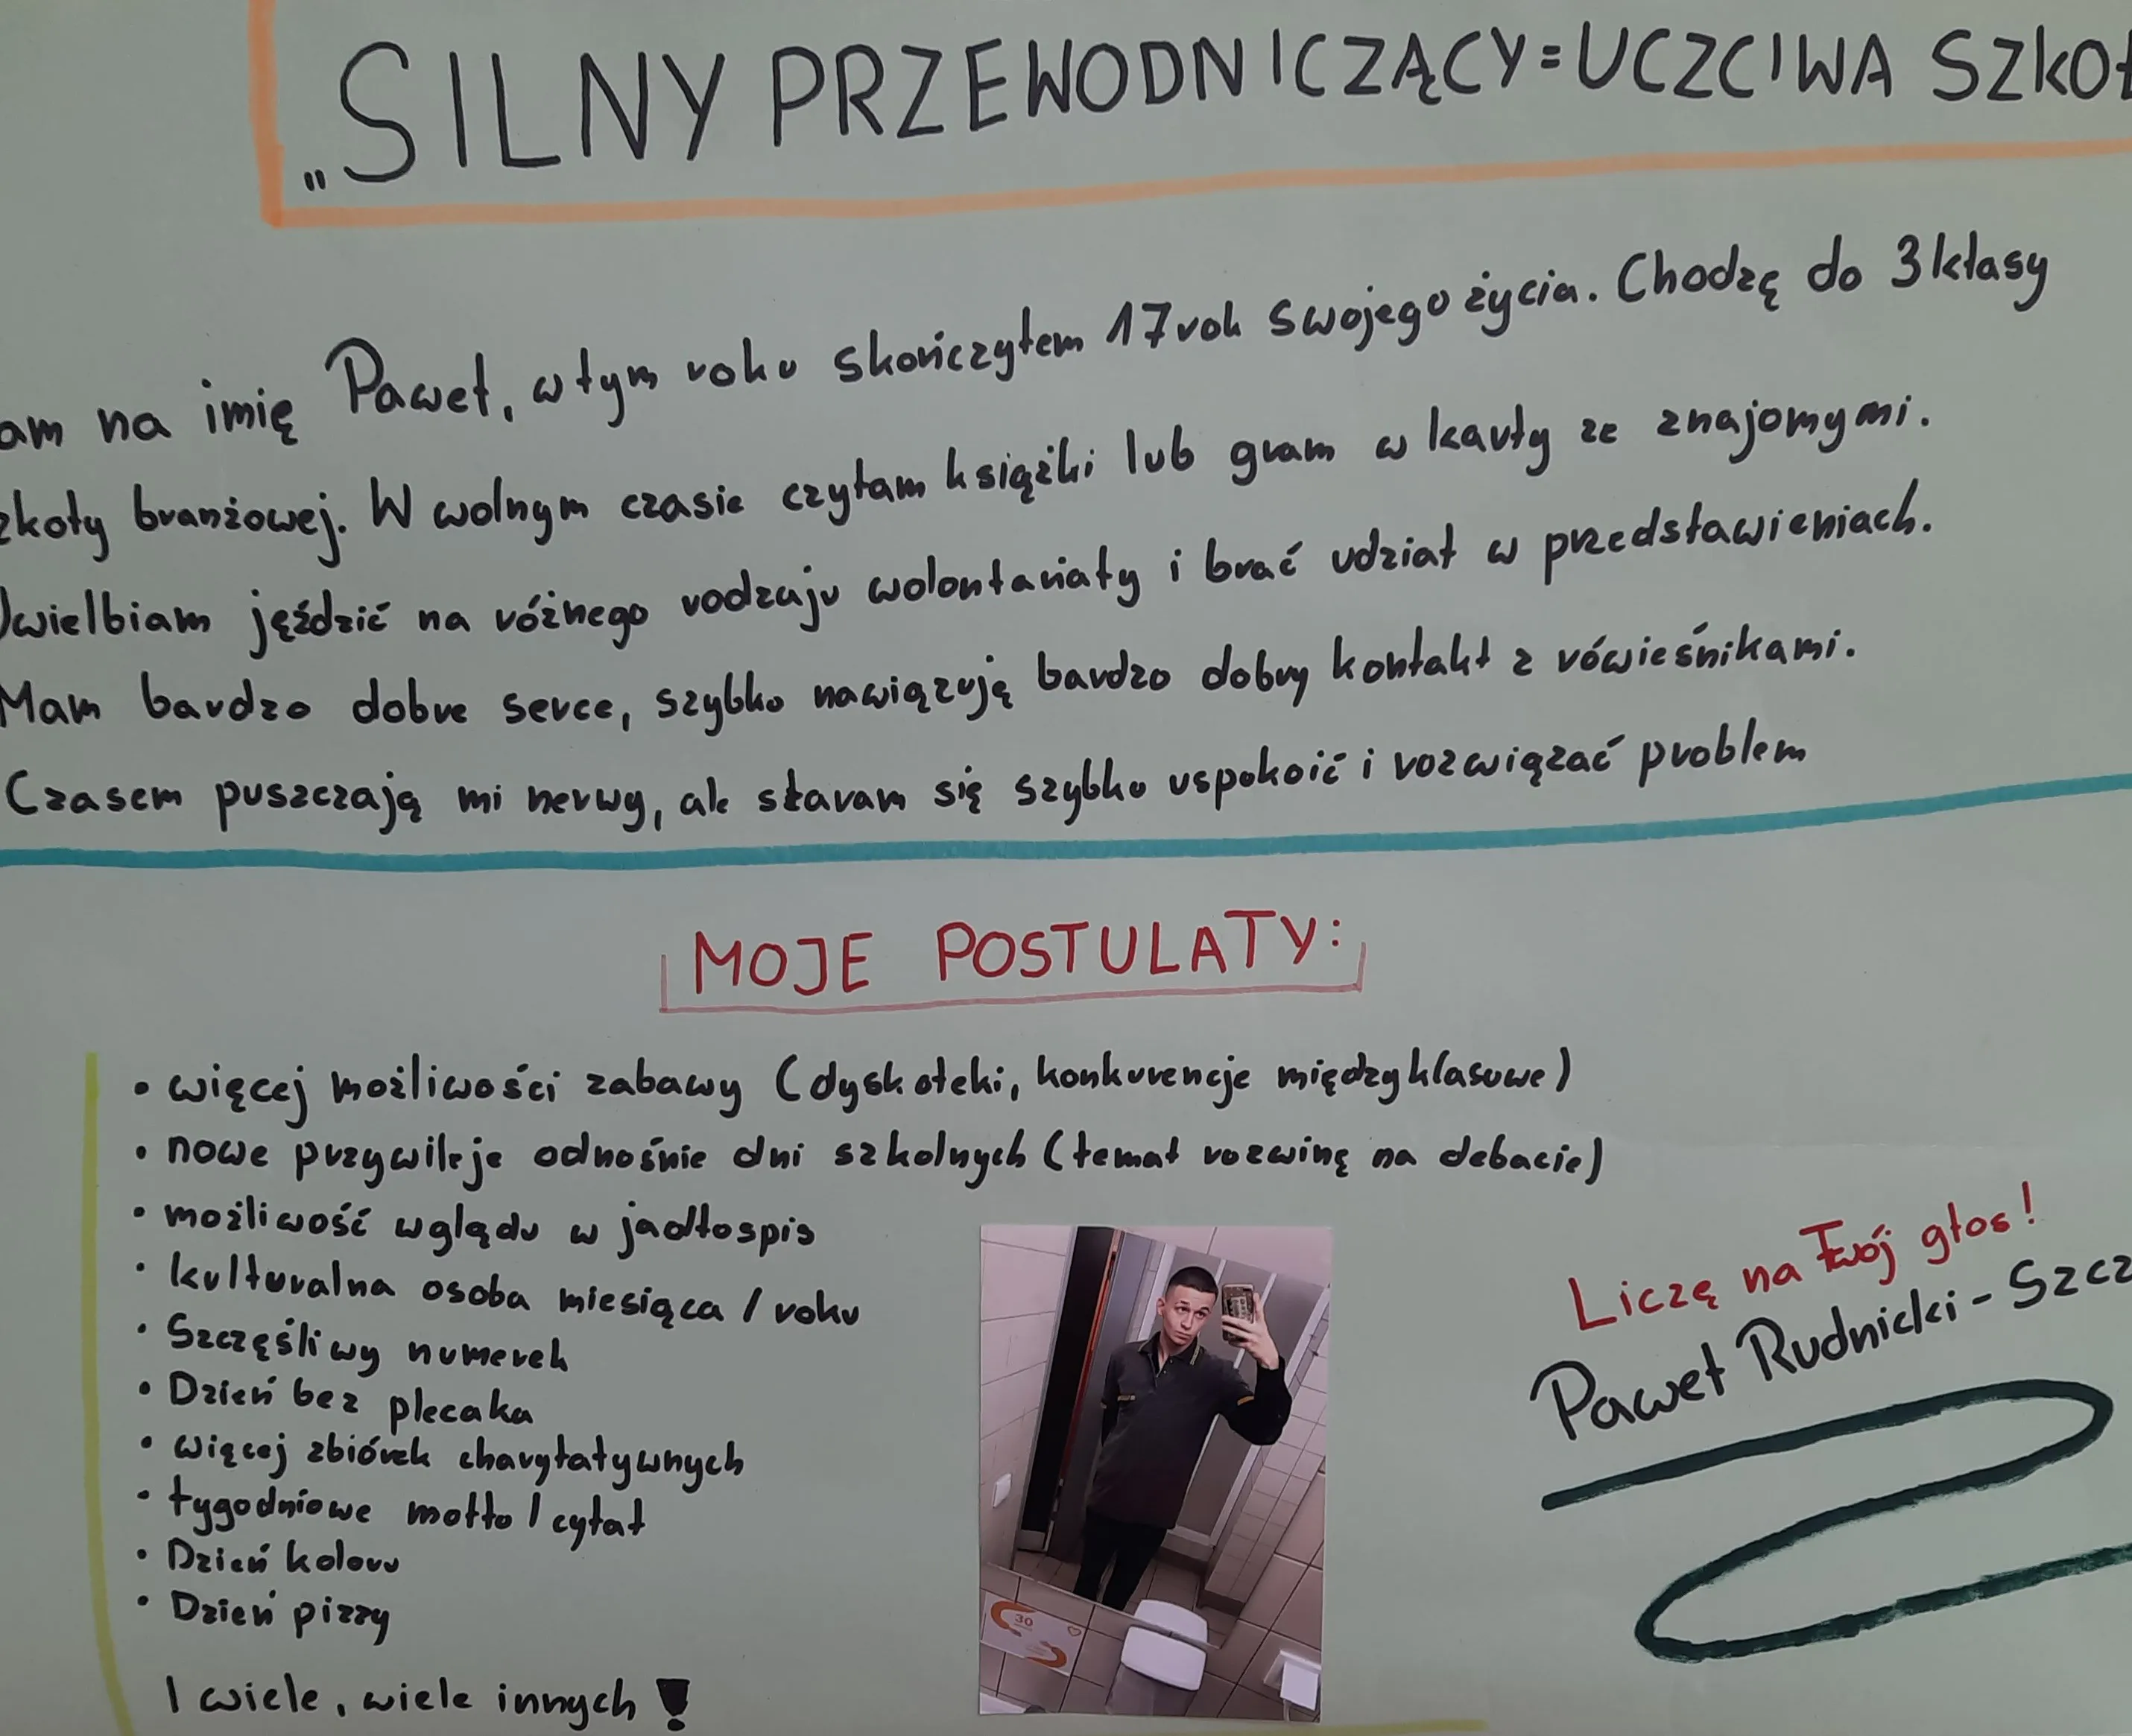 „SILNY PRZEWODNICZĄCY=UCZCIWA SZKOŁ
am na imię Paweł, w tym roku skończyłem 17 rok swojego życia. Chodzę do 3 klasy
zkoły branżowej. W wolnym czasie czytam książki lub gram w karty ze znajomymi.
Uwielbiam jeździć na różnego rodzaju wolontariaty i brać udział w przedstawieniach.
Mam bardzo dobre serce, szybko nawiązują bardzo dobry kontakt z rówieśnikami.
Czasem puszczają mi nerwy, ale staram się szybko uspokoić i rozwiązać problem
MOJE POSTULATY:
• więcej możliwości zabawy (dyskoteki, konkurencje międzyklasowe)
• nowe przywileje odnośnie dni szkolnych (temat rozwinę na debacie)
• możliwość wglądu w jadłospis
• kulturalna osoba miesiąca / roku
• Szczęśliwy numerek
• Dzień bez plecaka
• więcej zbiórek charytatywnych
• tygodniowe motto / cytat
• Dzień koloru
• Dzień pizzy
I wiele, wiele innych!
Liczę na Twój głos!
Paweł Rudnicki-Szcz
30